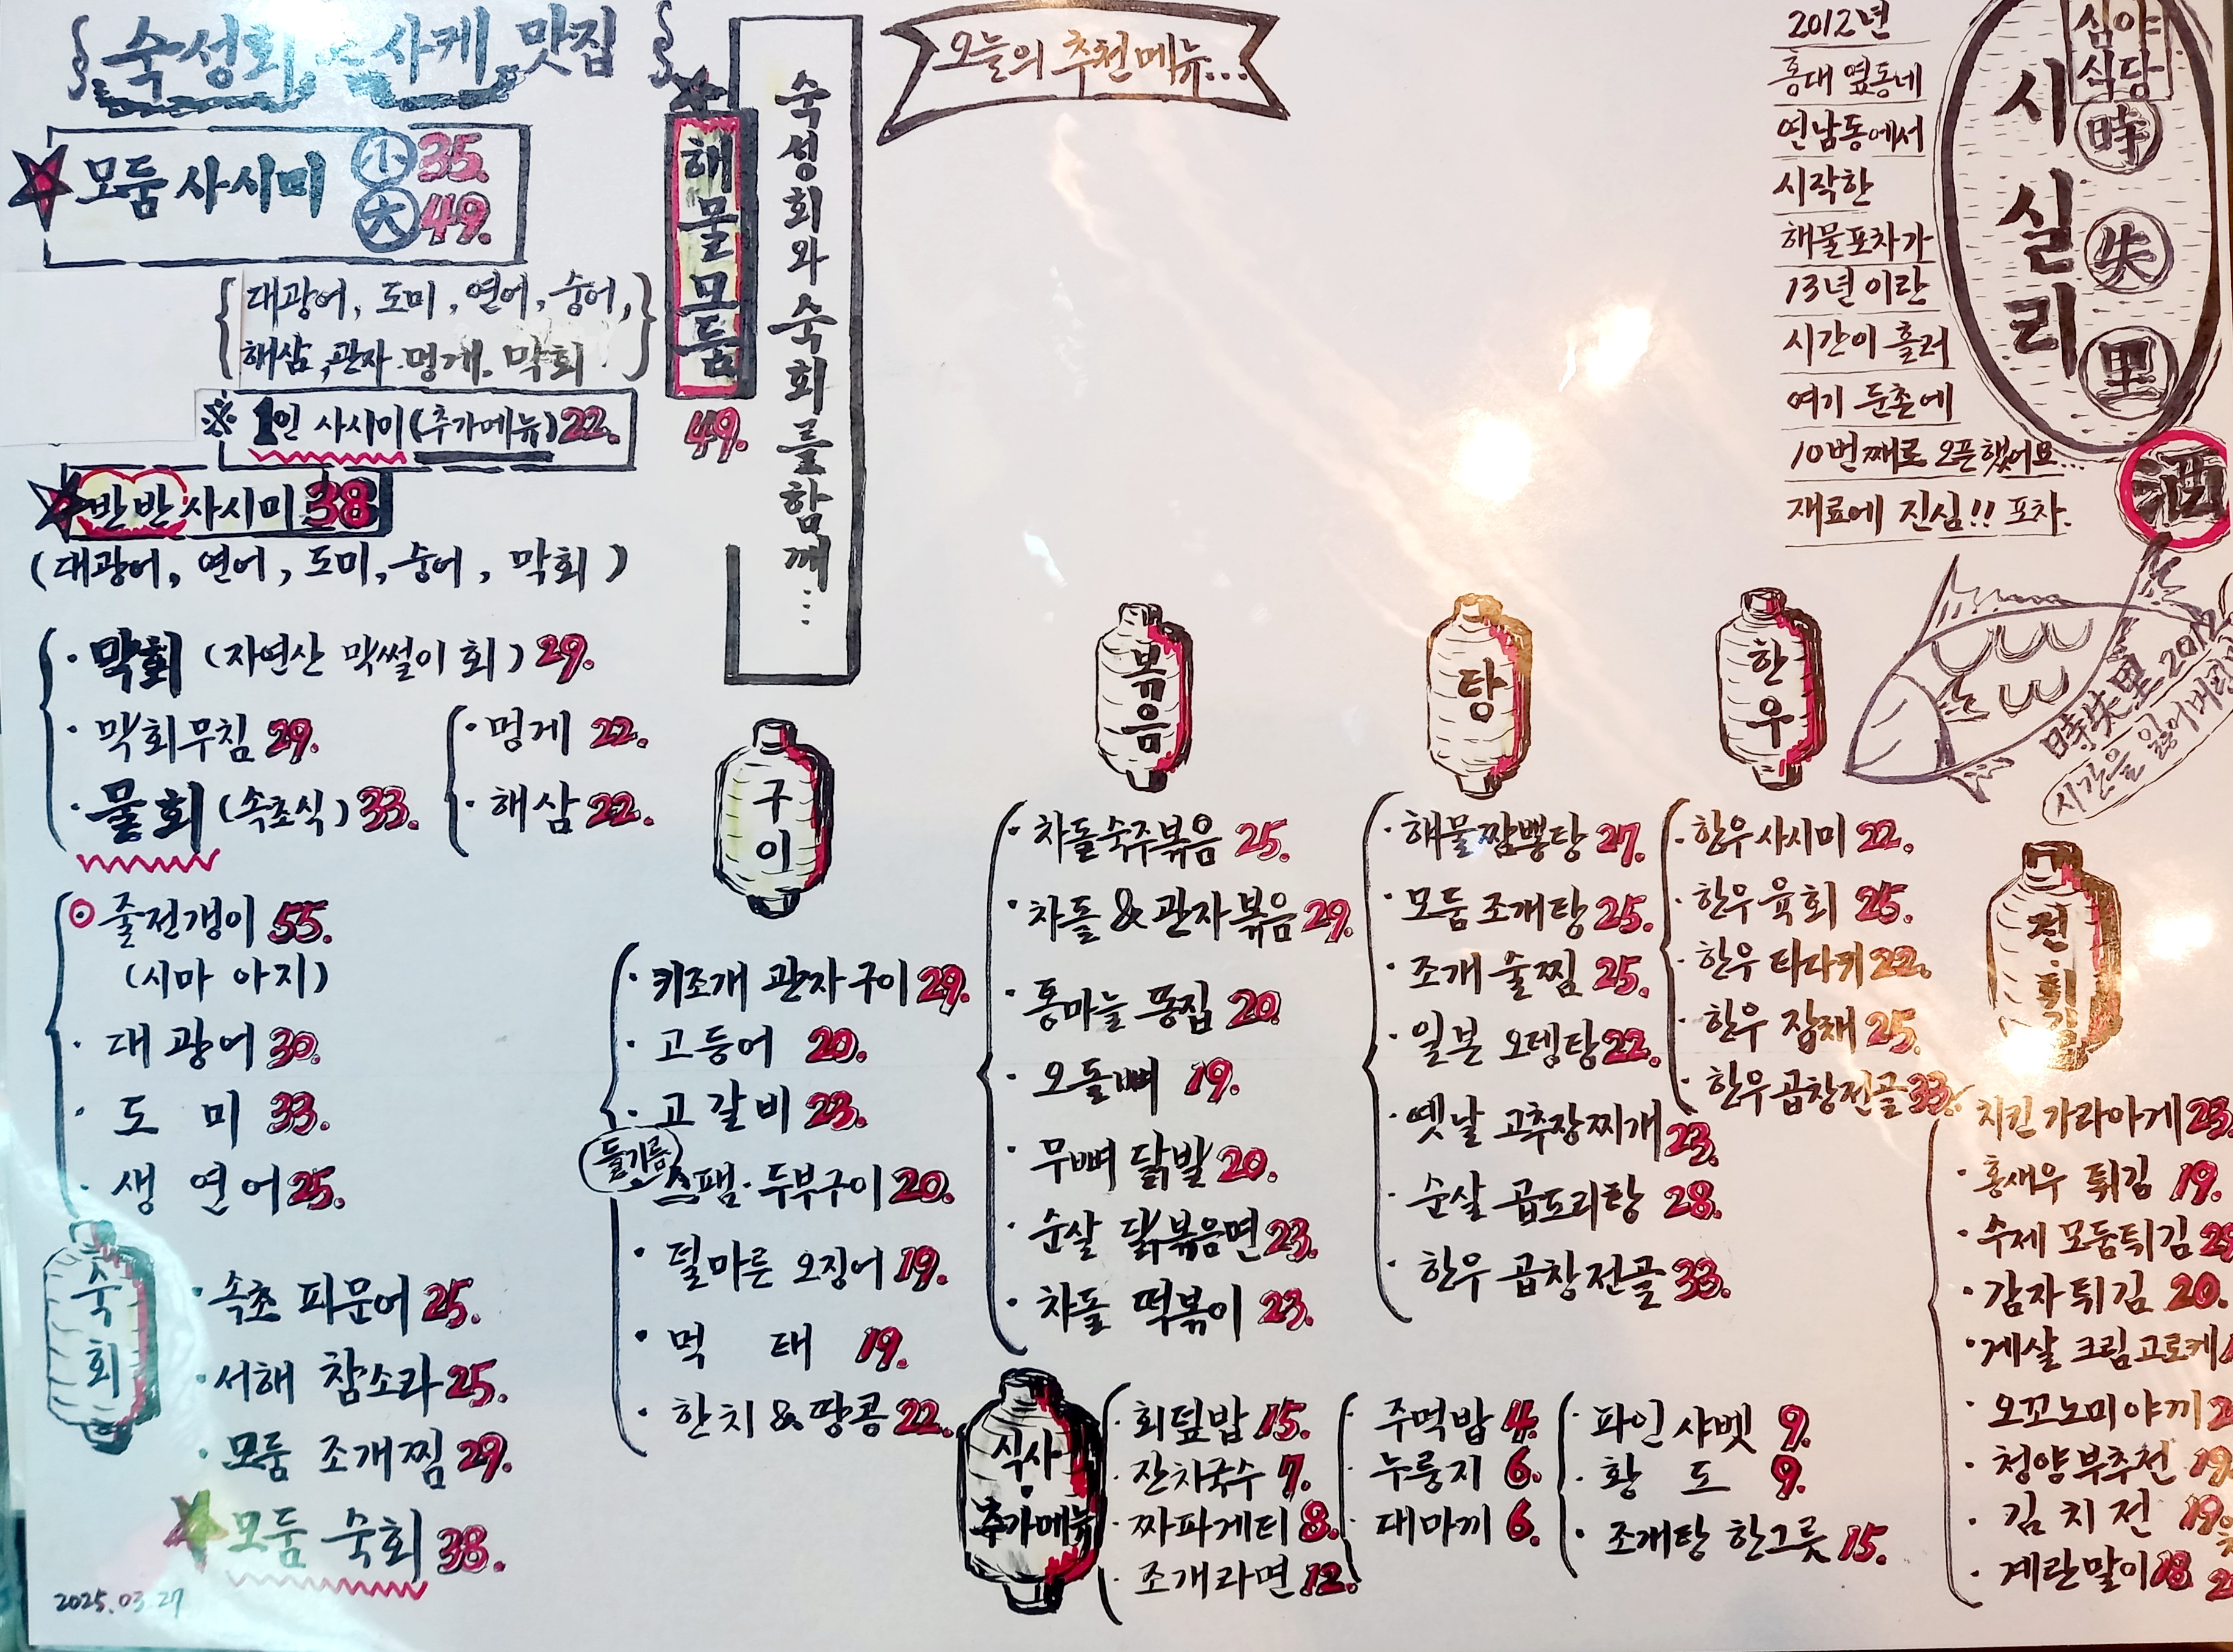 숙성회 사케 맛집
모둠 사시미 小 35.
大 49.
대광어, 도미, 연어, 숭어,
해삼, 관자. 멍게. 막회
※ 1인 사시미 (추가메뉴) 22.
반반 사시미 38
(대광어, 연어, 도미, 숭어, 막회)
· 막회 (자연산 막썰이 회) 29.
· 막회무침 29.
· 물회 (속초식) 33.
· 멍게 22.
· 해삼 22.
줄전갱이 55.
(시마 아지)
· 대광어 30.
· 도미 33.
· 생연어 25.
숙회
· 속초 피문어 25.
· 서해 참소라 25.
· 모둠 조개찜 29.
모둠 숙회 38.
2025.03.27
해물모둠
49.
숙성회와 숙회를 함께...
구이
· 키조개 관자구이 29.
· 고등어 20.
· 고갈비 23.
들기름
스팸·두부구이 20.
· 덜마른 오징어 19.
· 먹태 19.
· 한치 & 땅콩 22.
오늘의 추천메뉴...
볶음
· 차돌숙주볶음 25.
· 차돌 & 관자볶음 29.
· 통마늘 똥집 20.
· 오돌뼈 19.
· 무뼈 닭발 20.
· 순살 닭볶음면 23.
· 차돌 떡볶이 23.
탕
· 해물짬뽕탕 27.
· 모둠 조개탕 25.
· 조개 술찜 25.
· 일본 오뎅탕 22.
· 옛날 고추장찌개 23.
· 순살 곱도리탕 28.
· 한우 곱창전골 33.
한우
· 한우사시미 22.
· 한우육회 25.
· 한우 타다키 22.
· 한우 잡채 25.
· 한우곱창전골 33.
식사·추가메뉴
· 회덮밥 15.
· 잔치국수 7.
· 짜파게티 8.
· 조개라면 12.
· 주먹밥 4.
· 누룽지 6.
· 대마끼 6.
· 파인샤벳 9.
· 황도 9.
· 조개탕 한그릇 15.
2012년
홍대 옆동네
연남동에서
시작한
해물포차가
13년이란
시간이 흘러
여기 둔촌에
10번째로 오픈했어요...
재료에 진심!! 포차.
심야식당
시실리
時失里
酒
時失里 2012
시간을 잃어버린
전·튀김
치킨가라아게 23.
· 홍새우 튀김 19.
· 수제 모둠튀김
· 감자튀김 20.
· 게살 크림고로케
· 오꼬노미야끼
· 청양부추전 19
· 김치전 19.
· 계란말이 18